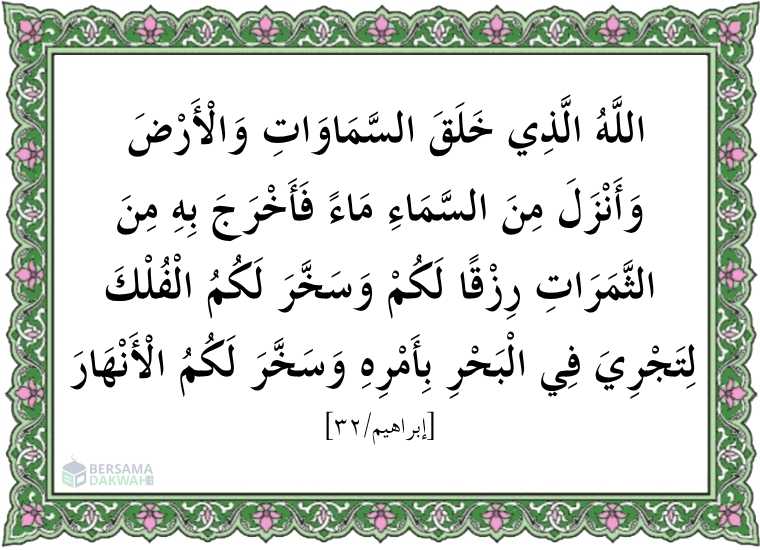 اللَّهُ الَّذِي خَلَقَ السَّمَاوَاتِ وَالْأَرْضَ
وَأَنْزَلَ مِنَ السَّمَاءِ مَاءً فَأَخْرَجَ بِهِ مِنَ
الثَّمَرَاتِ رِزْقًا لَكُمْ وَسَخَّرَ لَكُمُ الْفُلْكَ
لِتَجْرِيَ فِي الْبَحْرِ بِأَمْرِهِ وَسَخَّرَ لَكُمُ الْأَنْهَارَ
[إبراهيم/٣٢]
BERSAMA
DAKWAH